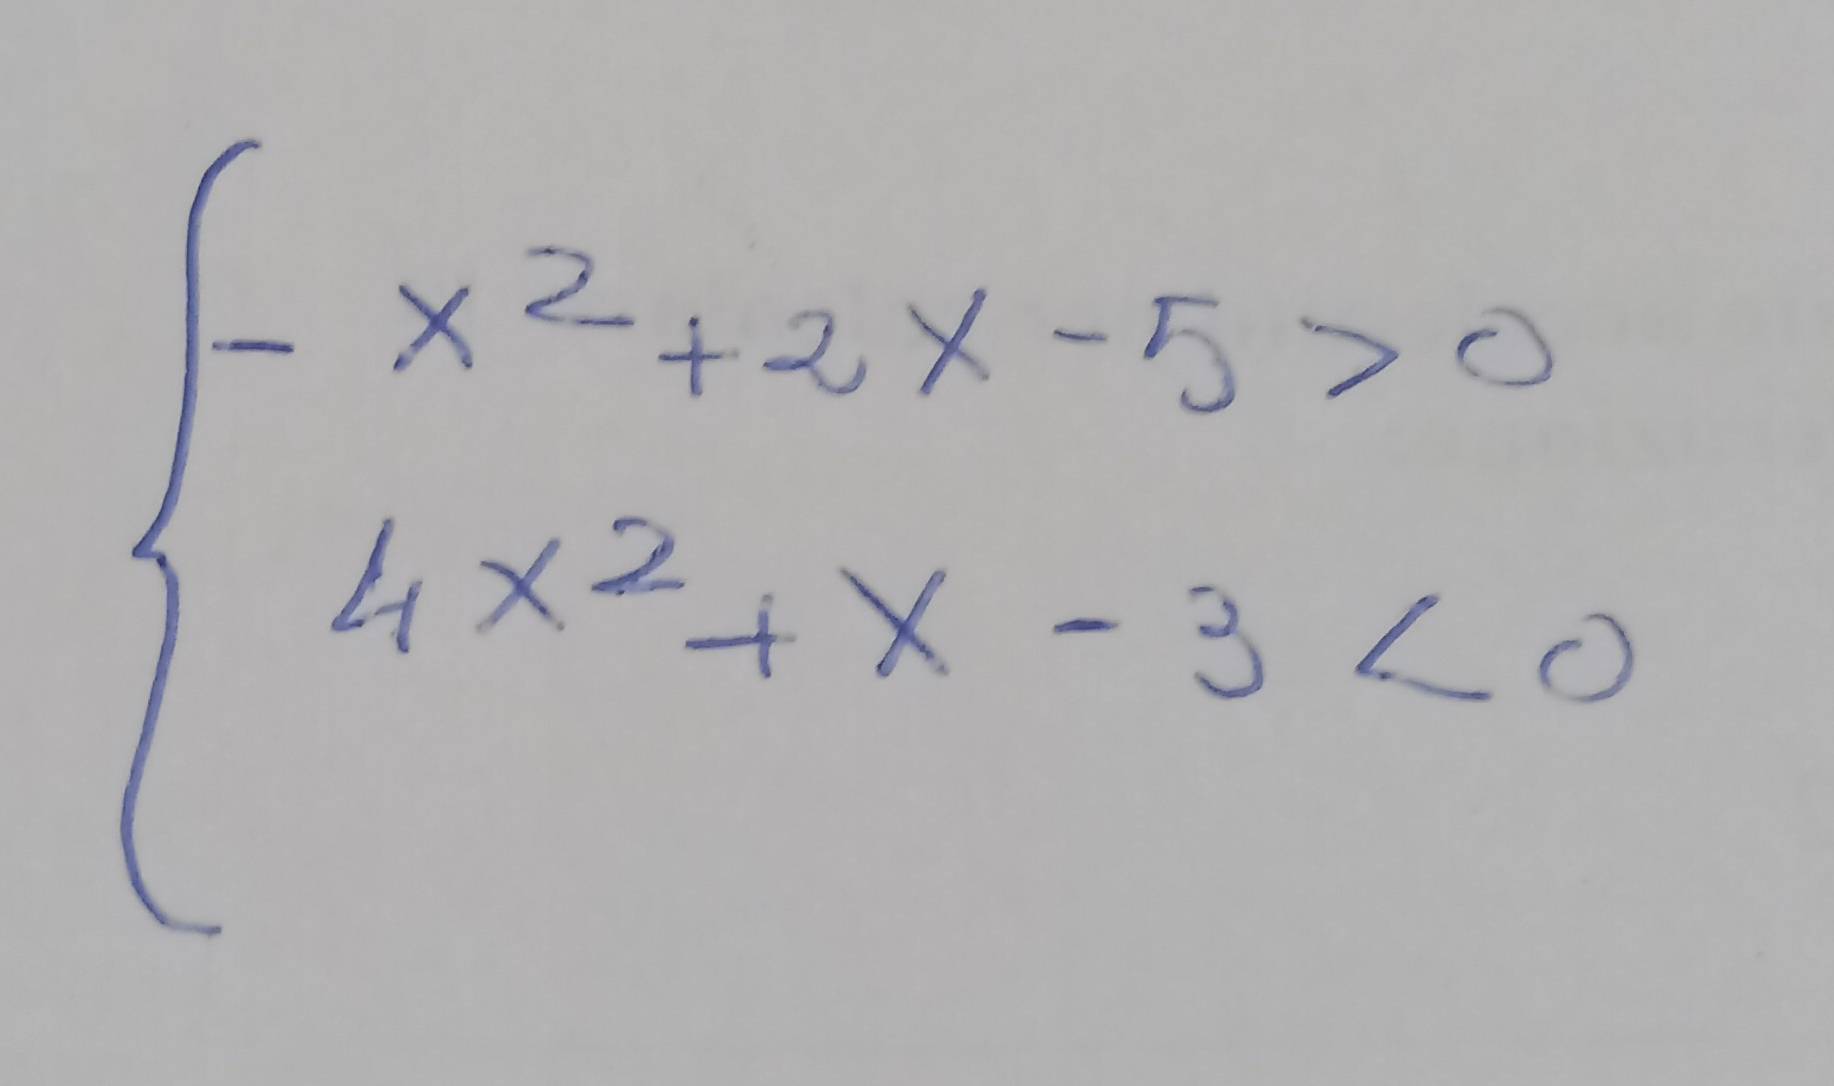 - x² + 2x - 5 > 0
4x² + x - 3 < 0